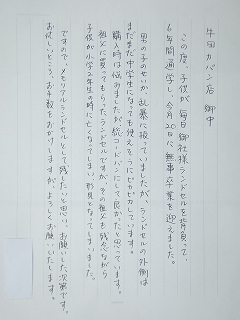 牛田カバン店 御中
この度、子供が毎日御社様ランドセルを背負って、
6年間通学し、今月20日に無事卒業を迎えました。
男の子のせいか、乱暴に扱っていましたが、ランドセルの外側は
まだまだ中学生になっても使えそうにピカピカしています。
購入時は悩みましたが総コードバンにして良かったと思っています。
祖父に買ってもらったランドセルですが、その祖父を残念ながら
子供が小学2年生の時に亡くしてしまい、形見となってしまいました。
ですので、メモリアルランドセルとして残したいと思い、お願いした次第です。
お忙しいところ、お手数をおかけしますが、よろしくお願いいたします。